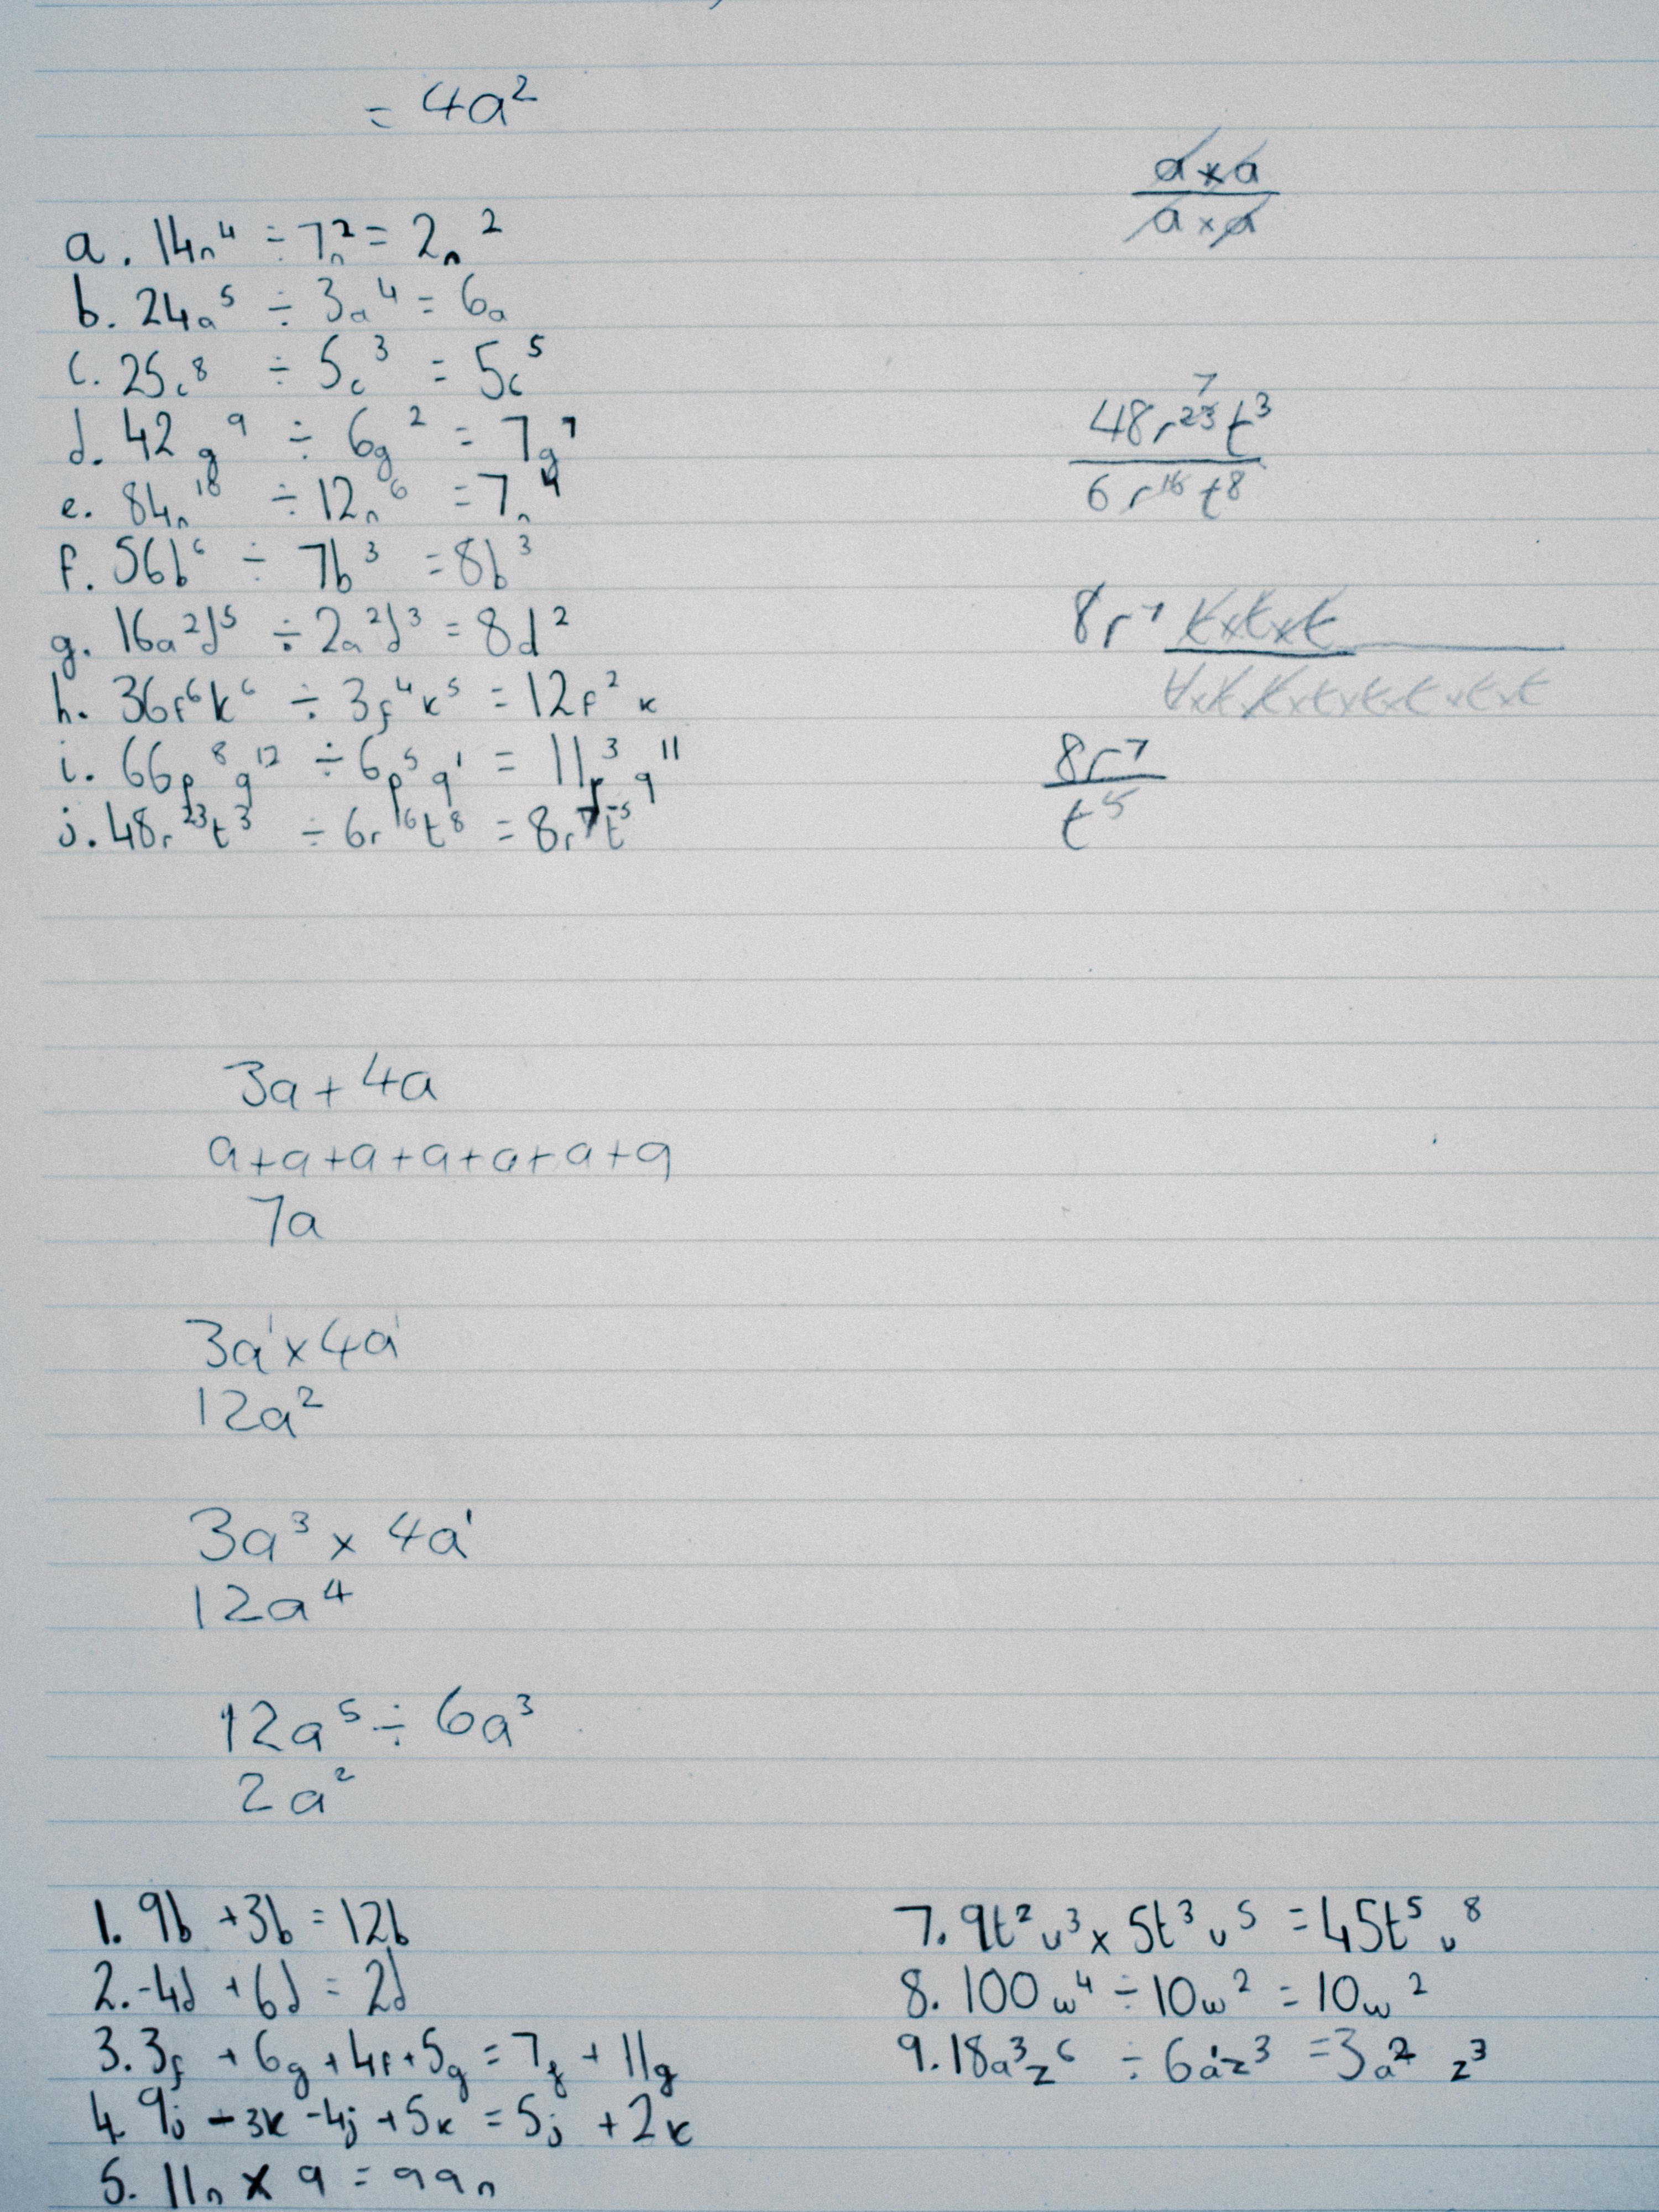 = 4a²
a×a
a×a
a. 14n⁴ ÷ 7n² = 2n²
b. 24a⁵ ÷ 3a⁴ = 6a
c. 25c⁸ ÷ 5c³ = 5c⁵
d. 42g⁹ ÷ 6g² = 7g⁷
e. 84n¹⁰ ÷ 12n⁶ = 7n⁴
f. 56b⁶ ÷ 7b³ = 8b³
g. 16a²d⁵ ÷ 2a²d³ = 8d²
h. 36f⁶k⁶ ÷ 3f⁴k⁵ = 12f²k
i. 66p⁸q¹² ÷ 6p⁵q¹ = 11p³q¹¹
j. 48r²³t³ ÷ 6r¹⁶t⁸ = 8r⁷t⁻⁵
7
48r²³t³
6r¹⁶t⁸
8r⁷ t×t×t
t×t×t×t×t×t×t×t
8r⁷
t⁵
3a + 4a
a+a+a+a+a+a+a
7a
3a¹×4a¹
12a²
3a³ × 4a¹
12a⁴
12a⁵ ÷ 6a³
2a²
1. 9b + 3b = 12b
2. -4d + 6d = 2d
3. 3f + 6g + 4f + 5g = 7f + 11g
4. 9j - 3k - 4j + 5k = 5j + 2k
5. 11n × 9 = 99n
7. 9t²v³ × 5t³v⁵ = 45t⁵v⁸
8. 100w⁴ ÷ 10w² = 10w²
9. 18a³z⁶ ÷ 6a¹z³ = 3a²z³